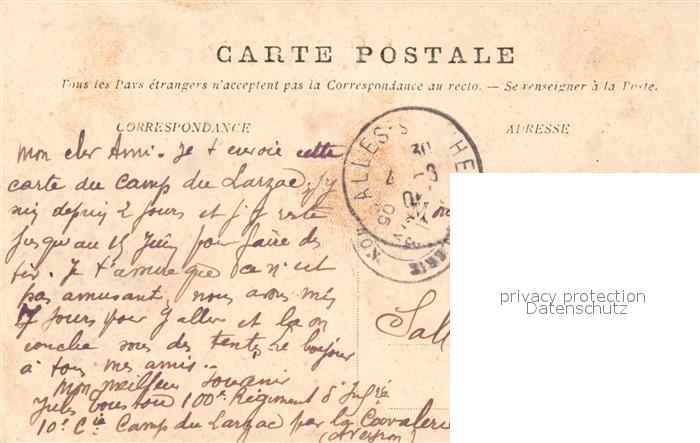 CARTE POSTALE
Tous les Pays étrangers n'acceptent pas la Correspondance au recto. — Se renseigner à la Poste.
CORRESPONDANCE
ADRESSE
Mon cher Ami. Je t'envoie cette
carte du Camp du Larzac, j'y
suis depuis 2 jours et j'y reste
jusqu'au 15 Juin pour faire des
tir. Je t'assure que ce n'est
pas amusant, nous avons mis
7 jours pour y aller et la on
couche sous des tentes, le bonjour
à tous mes amis.
Mon meilleur souvenir
Jules 100e Régiment d'Infrie
10e Cie Camp du Larzac par la Cavalerie
(Aveyron)
ALLES-S
HE
30
05
Sall
privacy protection
Datenschutz